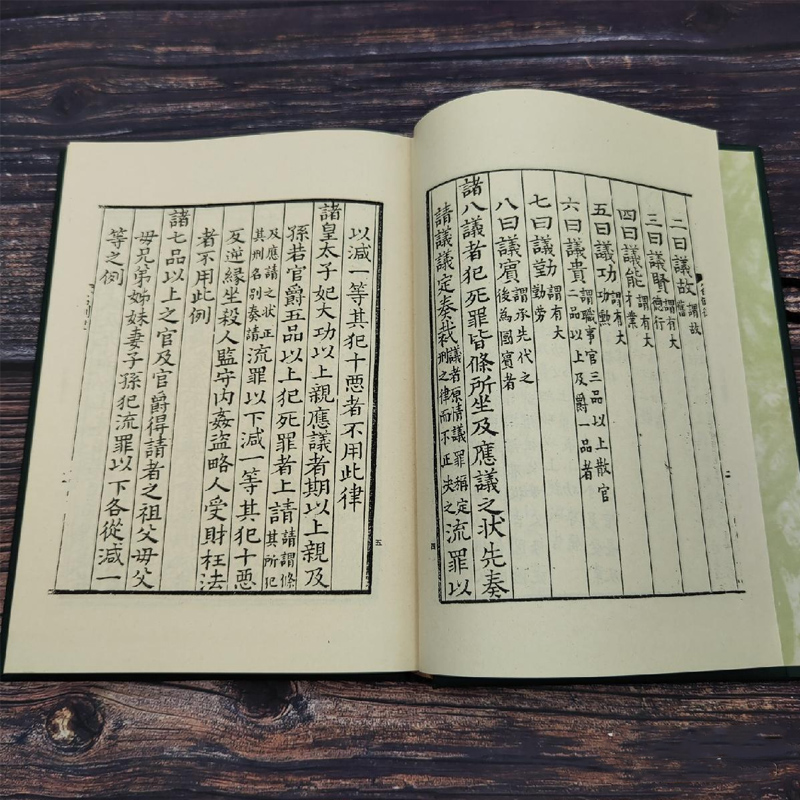 二曰議故 謂故舊
三曰議賢 謂有大德行
四曰議能 謂有大才業
五曰議功 謂有大功勳
六曰議貴 謂職事官三品以上散官二品以上及爵一品者
七曰議勤 謂有大勤勞
八曰議賓 謂承先代之後為國賓者
諸八議者犯死罪皆條所坐及應議之狀先奏
請議議定奏裁 議者原情議罪稱定刑之律而不正决之 流罪以
四
以減一等其犯十惡者不用此律
諸皇太子妃大功以上親應議者期以上親及
孫若官爵五品以上犯死罪者上請 請謂條其所犯
及應請之狀正其刑名別奏請 流罪以下減一等其犯十惡
反逆緣坐殺人監守內姦盜略人受財枉法
者不用此例
諸七品以上之官及官爵得請者之祖父母父
母兄弟姊妹妻子孫犯流罪以下各從減一
等之例
五